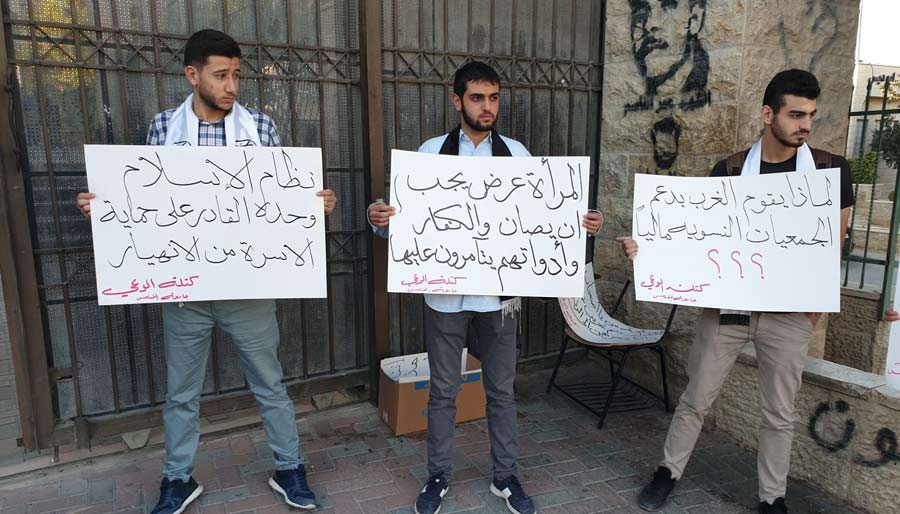 نظام الإسلام
وحده القادر على حماية
الاسرة من الانهيار
كتلة الوعي
جامعة القدس
المرأة عرض يجب
ان يصان والكفار
وأدواتهم يتآمرون عليها
كتلة الوعي
جامعة القدس
لماذا يقوم الغرب بدعم
الجمعيات النسوية مالياً
؟؟؟
كتلة الوعي
جامعة القدس